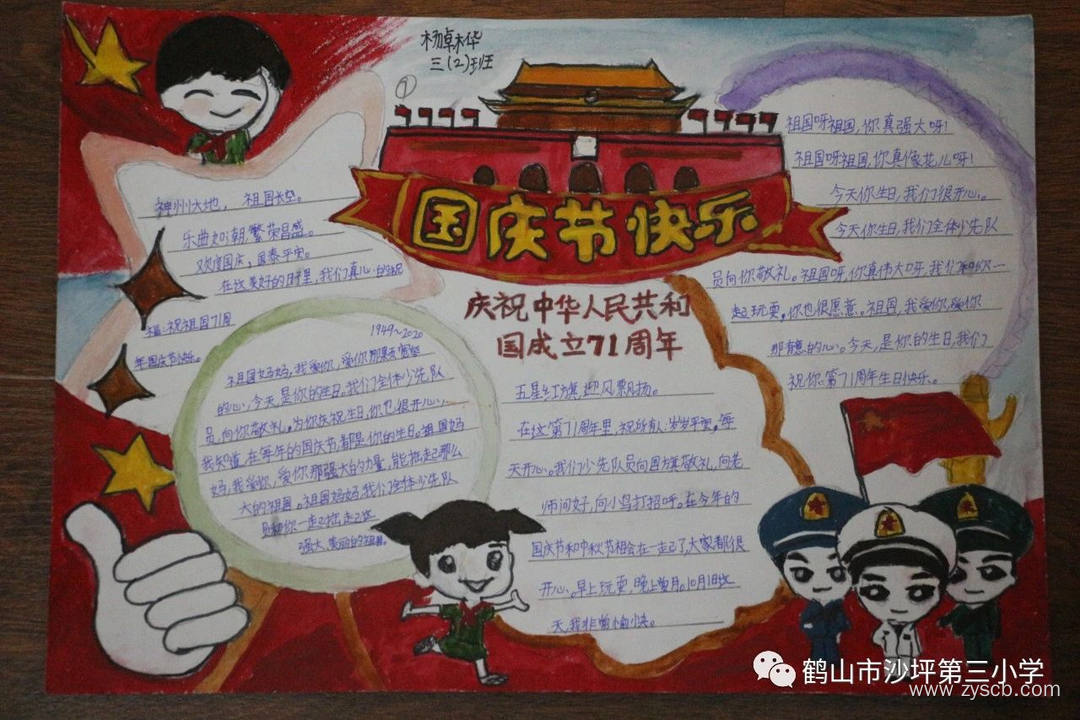 杨卓桦
三(2)班
①
国庆节快乐
庆祝中华人民共和
国成立71周年
神州大地， 祖国长空。
乐曲如潮,繁荣昌盛。
欢度国庆，国泰平安。
在这美好的日子里,我们真心的祝
福:祝祖国71周
年国庆节快乐。
1949~2020
祖国妈妈,我爱你,爱你那果实
的心,今天,是你的生日,我们全体少先队
员,向你敬礼。为你庆祝生日,你也很开心,
我知道,在每年的国庆节,都是你的生日。祖国妈
妈,我爱你,爱你那强大的力量,能撑起那么
大的祖国。祖国妈妈,我们全体少先队
员和你一起
强大,美丽的祖国。
五星红旗,迎风飘扬。
在这第71周年里,祝所有人:岁岁平安,每
天开心。我们少先队员向国旗敬礼,向老
师问好,向小鸟打招呼。在今年的
国庆节和中秋节相会在一起了,大家都很
开心。早上玩耍,晚上赏月。10月1日这
天,我非常愉快。
祖国呀祖国,你真强大呀!
祖国呀祖国,你真像花儿呀!
今天你生日,我们很开心。
今天你生日,我们全体少先队
员向你敬礼。祖国呀,你真伟大呀,我们和你一
起玩耍,你也很愿意。祖国,我爱你,爱你
那有意的心。今天,是你的生日,我们
祝你:第71周年生日快乐。
鹤山市沙坪第三小学
www.zyscb.com